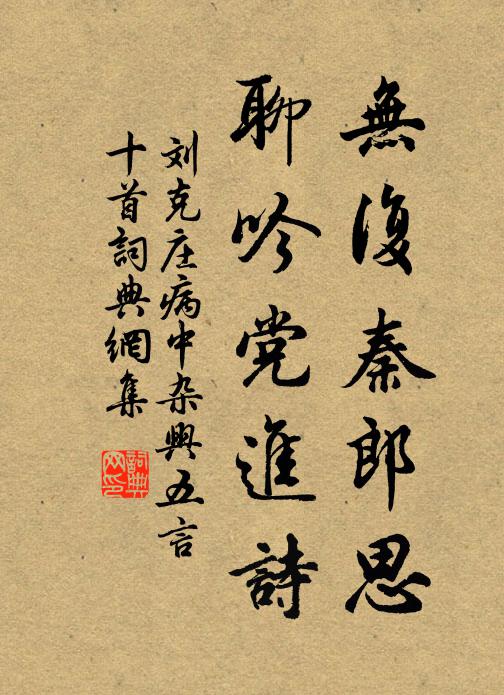 無復秦郎思
聊吟党進詩
刘克庄病中杂興五言
十首詞典網集
詞典网印